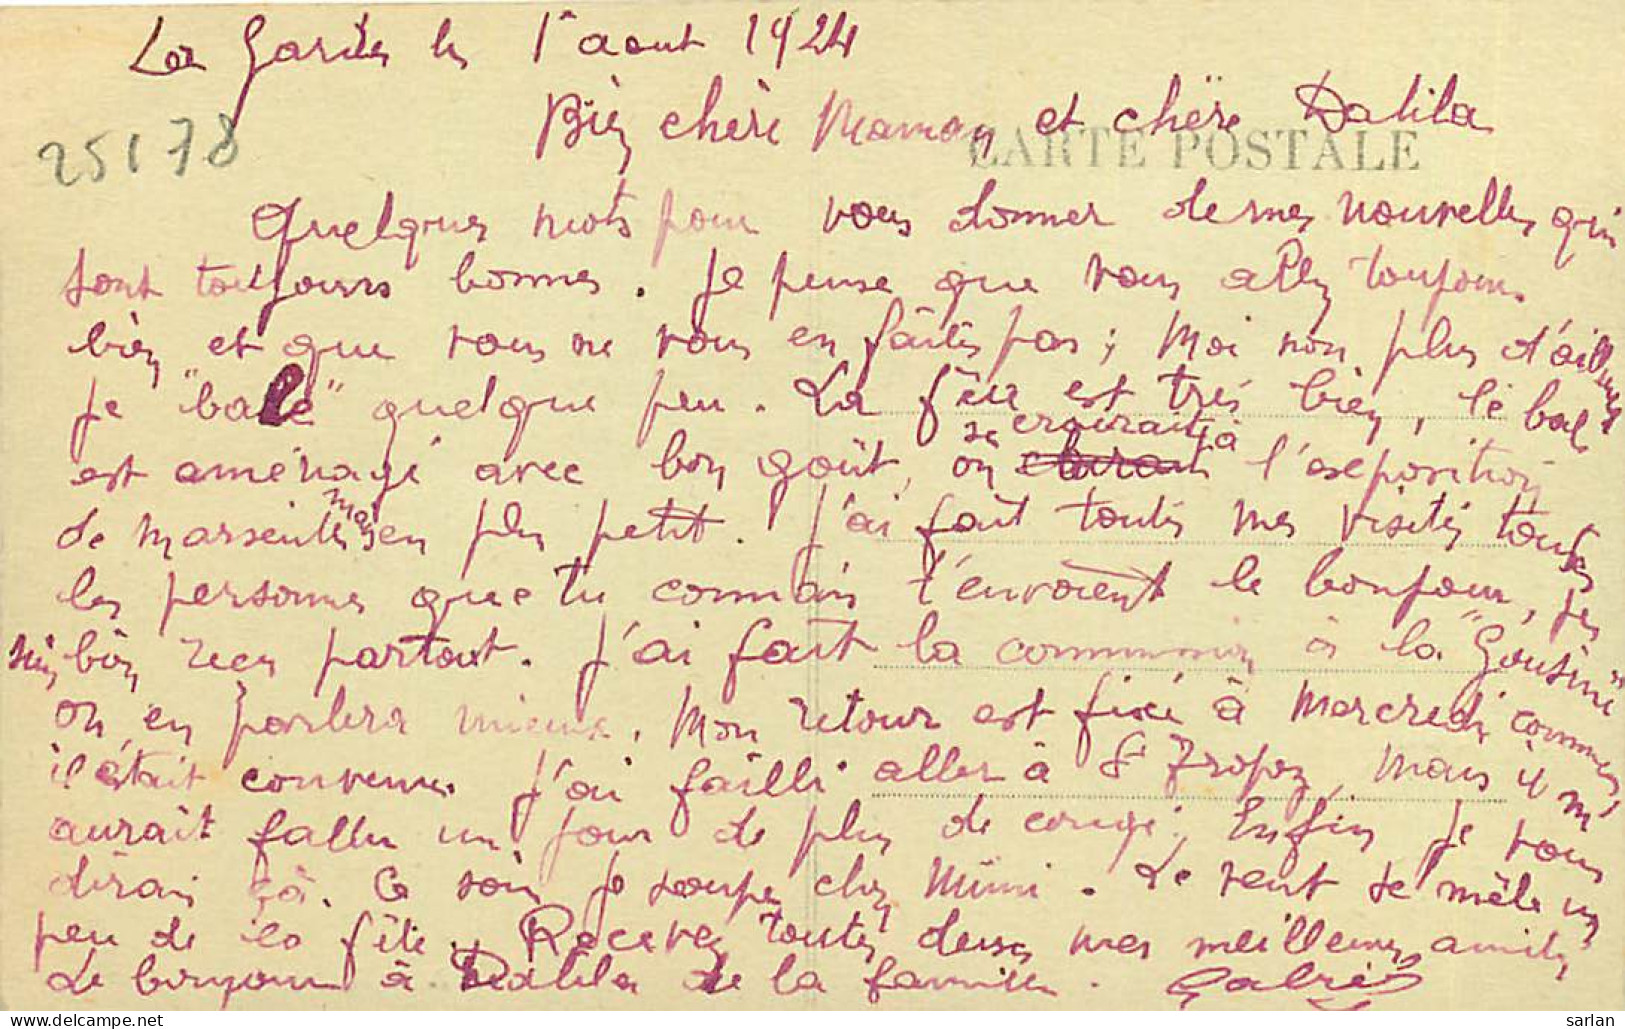 La Garde le 1er aout 1924
Bien chère Maman et chère Dalila
CARTE POSTALE
25178
Quelques mots pour vous donner de mes nouvelles qui
sont toujours bonnes. Je pense que vous allez toujours
bien et que vous ne vous en faites pas; Moi non plus d'ailleurs
je "bale" quelque peu. La fête est très bien, le bal
est aménagé avec bon goût, on se croirait à l'exposition
de Marseille mais en plus petit. J'ai fait toutes mes visites toutes
les personnes que tu connais t'envoient le bonjour, je
suis bien reçu partout. J'ai fait la commission à la "Cousine"
on en parlera mieux. Mon retour est fixé à Mercredi comme
il était convenu. J'ai failli aller à St Tropez, Mais il m'
aurait fallu un jour de plus de congé; Enfin je vous
dirai çà. Ce soir je soupe chez Mimi. Le vent se mêle un
peu de la fête. Recevez toutes deux mes meilleures amitiés
Le bonjour à Dalila de la famille. Gabriel
sarlan